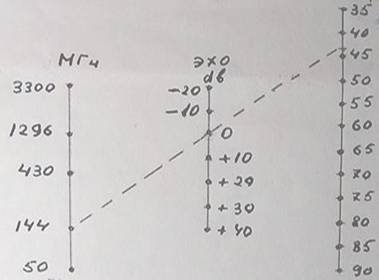 МГц
3300
1296
430
144
50
эхо
дв
-20
-10
0
+10
+20
+30
+40
35
40
45
50
55
60
65
70
75
80
85
90